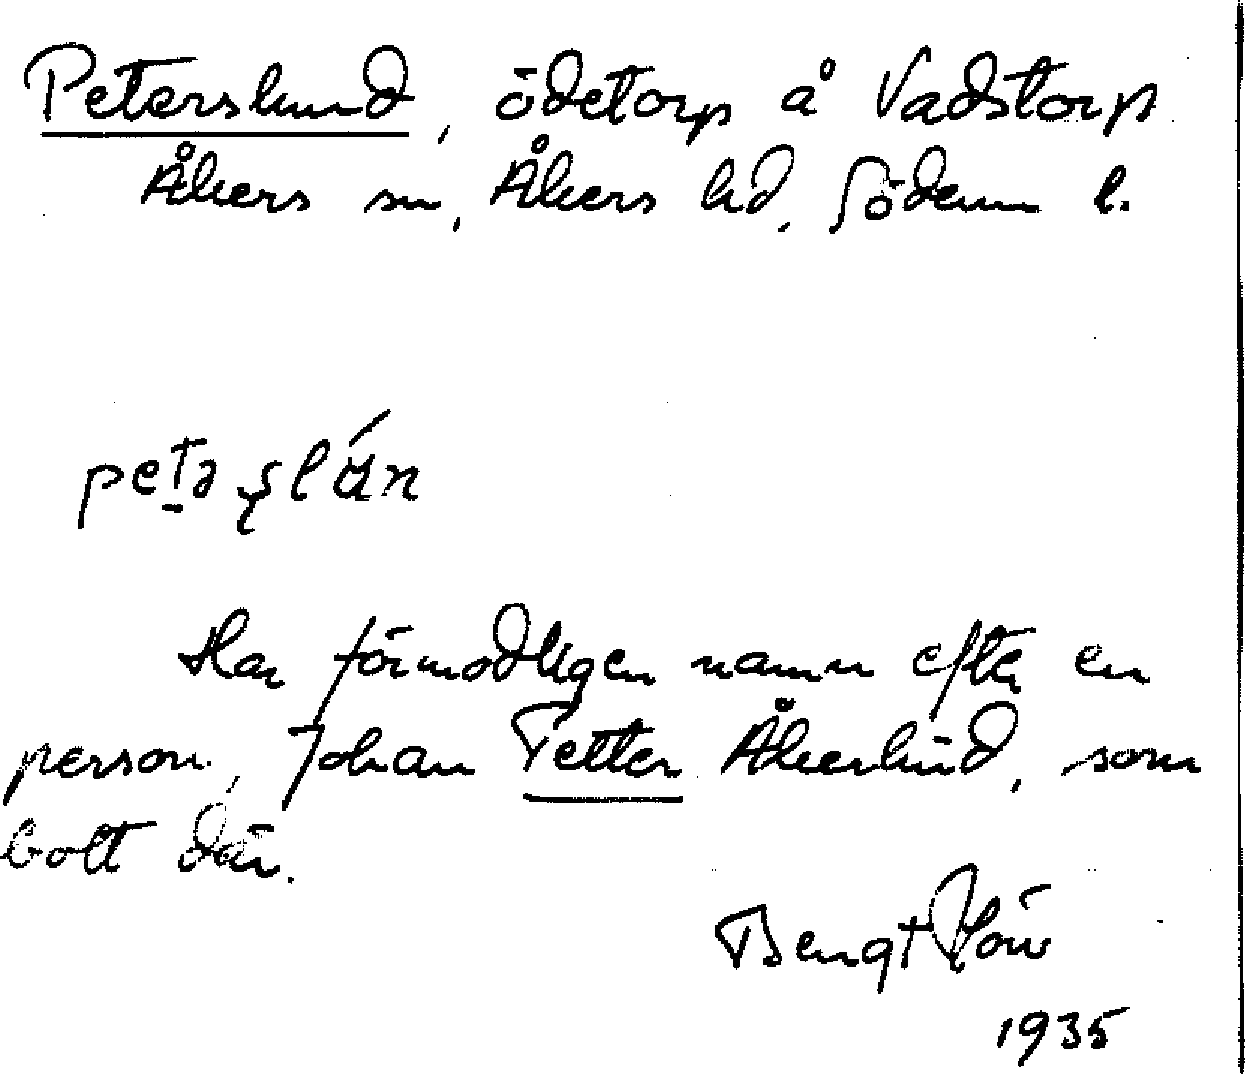 Peterslund, ödetorp å Vadstorp
Åkers sn, Åkers hd, Söderm l.
Har förmodligen namn efter en
person, Johan Petter Åkerlund, som
bott där.
Bengt
1935